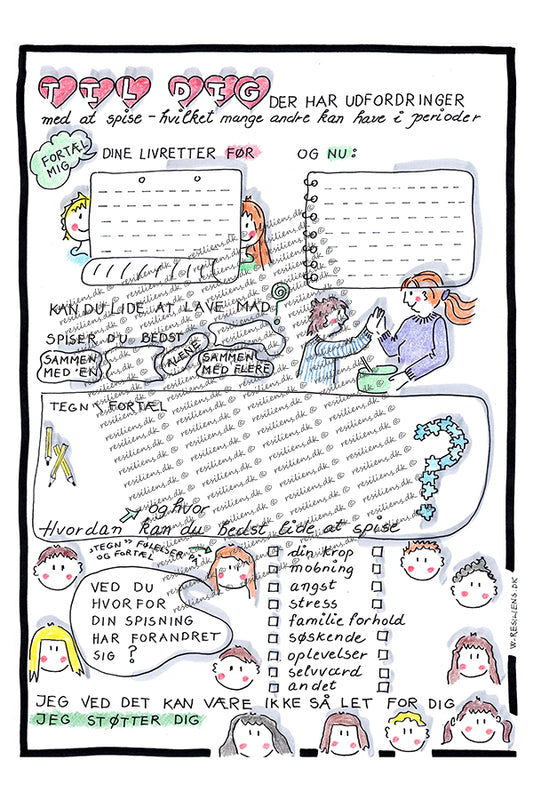 TIL DIG DER HAR UDFORDRINGER
med at spise - hvilket mange andre kan have i perioder
FORTÆL
MIG
DINE LIVRETTER FØR
OG NU:
KAN DU LIDE AT LAVE MAD?
SPISER DU BEDST
SAMMEN
MED 'EN
ALENE
SAMMEN
MED FLERE
TEGN & FORTÆL
og hvor
Hvordan kan du bedst lide at spise
"TEGN" FØLELSER PÅ
OG FORTÆL
VED DU
HVORFOR
DIN SPISNING
HAR FORANDRET
SIG ?
din krop
mobning
angst
stress
familieforhold
søskende
oplevelser
selvværd
andet
JEG VED DET KAN VÆRE IKKE SÅ LET FOR DIG
JEG STØTTER DIG
W-RESILIENS.DK
resiliens.dk ©